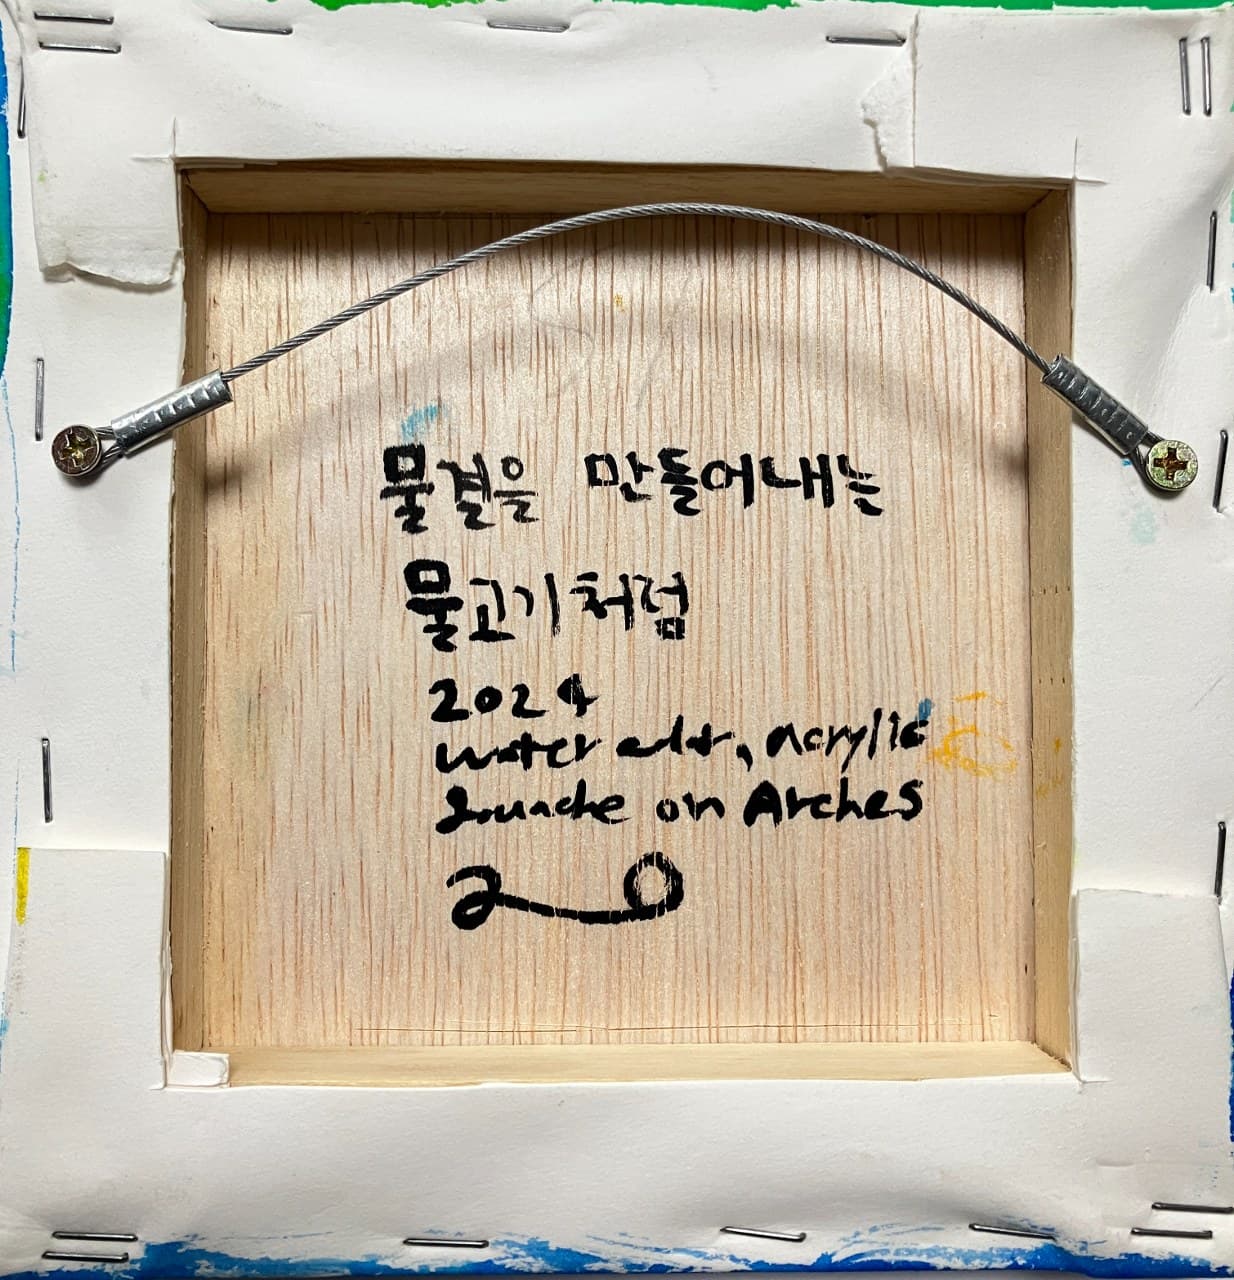 물결을 만들어내는
물고기처럼
2024
water color, acrylic
Gouache on Arches